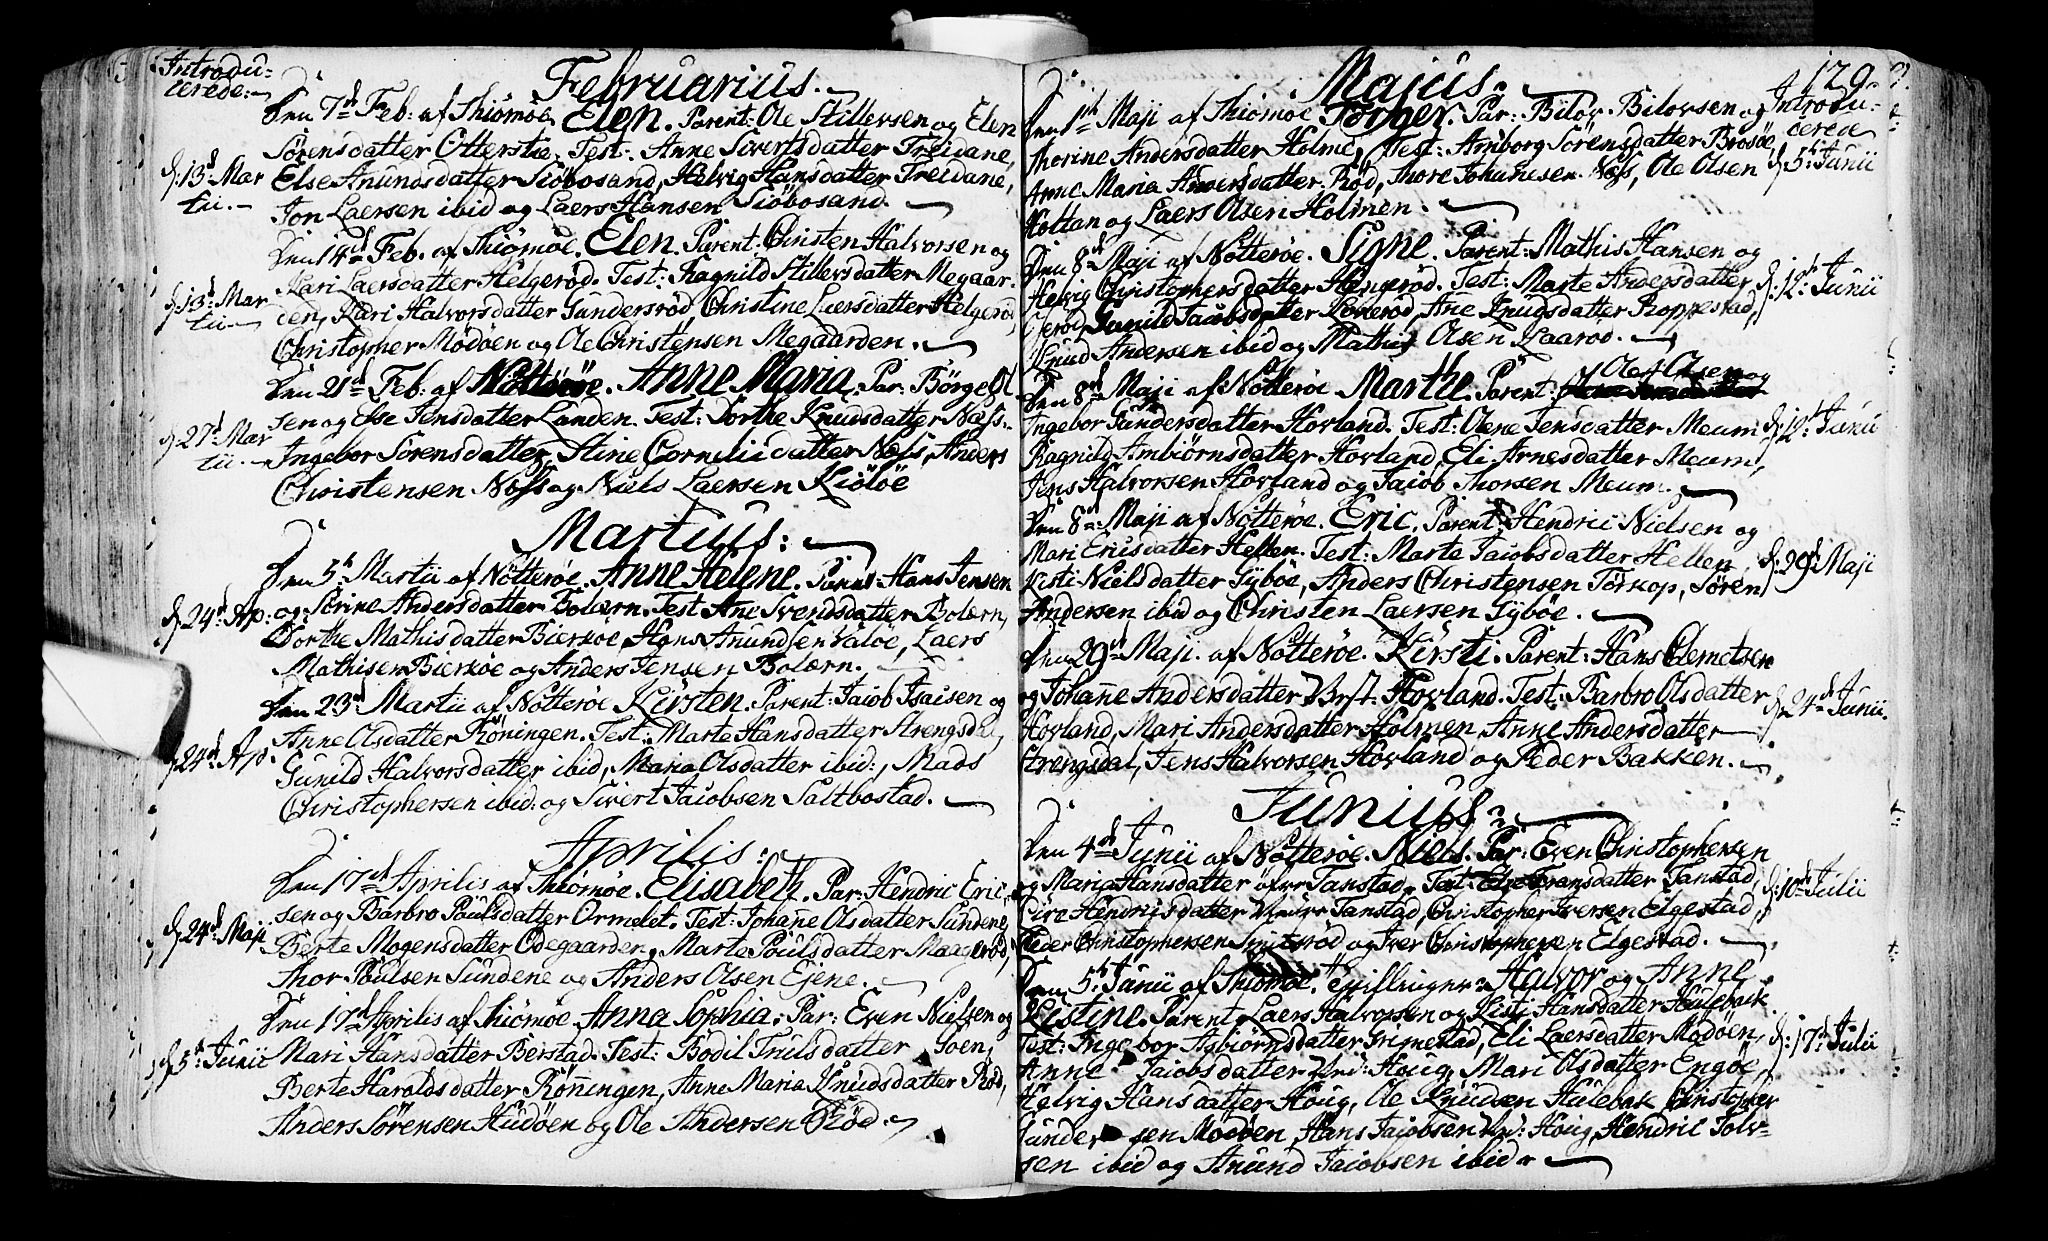 Introdu-
cerede:
Februarius.
Den 7d Feb: af Thiömöe, Elen. Parent: Ole Stillersen og Elen
Sörensdatter Otterstie. Test: Anne Sivertsdatter Treidane,
d: 13d Mar
tii.
Else Anundsdatter Siöbosand, Helvig Hansdatter Treidane,
Jon Laersen ibid og Laers Hansen Siöbosand.
Den 14d Feb. af Thiömöe. Elen. Parent: Christen Halvorsen og
Kari Laersdatter Helgeröd. Test: Ragnild Stillersdatter Megaar-
d: 13d Mar
tii
den, Kari Halvorsdatter Gundersröd, Christine Laersdatter Helgeröd,
Christopher Mödöen og Ole Christensen Megaarden.
Den 21d Feb: af Nötteröe. Anne Maria. Par: Börge Ol
sen og Else Jensdatter Landen. Test: Dorthe Knudsdatter Næss.
d: 27d Mar
tii.
Ingebor Sörensdatter, Stine Cornelii datter Næss, Anders
Christensen Næss og Niels Laersen Kiölöe
Martius:
Den 5h Martii af Nötteröe. Anne Helene. Parent: Hans Jensen
d: 24d Ap:
og Sörine Andersdatter Bolærn. Test Ane Svendsdatter Bolærn,
Dorthe Mathisdatter Bierköe, Hans Anundsen Valöe, Laers
Mathisen Bierköe og Anders Jensen Bolærn.
Den 23d Martii af Nötteröe Kirsten. Parent: Jacob Isaisen og
Anne Olsdatter Röningen. Test: Marte Hansdatter Strengsdal,
d: 24d Ap.
Gunild Halvorsdatter ibid, Maria Olsdatter ibid:, Mads
Christophersen ibid: og Sivert Jacobsen Saltbostad.
Aprilis:
Den 17d Aprilis af Thiömöe. Elisabeth. Par: Hendric Eric,
sen og Barbro Poulsdatter Ormelet. Test: Johane Olsdatter Sundene,
d: 24d Maji
Berte Mogensdatter Ödegaarden, Marte Poulsdatter Maageröd,
Thor Poulsen Sundene og Anders Olsen Ejene.
Den 17d Aprilis af Thiömöe. Anna Sophia. Par: Even Nielsen og
d: 5h Junii
Mari Hansdatter Berstad. Test: Bodil Trulsdatter Goen,
Berte Haroldsdatter Rönningen, Anne Maria Knudsdatter Röd,
Anders Sörensen Hudöen og Ole Andersen Röd.
129
Majus.
Introdu-
cerede
Den 1d Maji af Thiömöe Torger. Par: Bilov Bilovsen og
Thorine Andersdatter Holme, Test: Amborg Sörensdatter Brösöe,
Anne Maria Andersdatter Röd, Thore Johannesen Næss, Ole Olsen
d: 5h Junii
Holtan og Laers Olsen Holmen.
Den 8d Maji af Nötteröe. Signe. Parent: Mathis Hansen og
Helvig Christophersdatter Hengeröd. Test: Marte Andersdatter
d: 12d Junii
Gunild Jacobsdatter Loveröd, Ane Knudsdatter Roppestad,
Knud Andersen ibid og Mathis Olsen Laaröd.
Den 8d Maji af Nötteröe Marthe. Parent: Ole Olsen og
Ingebor Gundersdatter Hovland. Test: Olene Jensdatter Meum
d: 12d Junii
Ragnild Ambiörnsdatter Hovland, Eli Arnesdatter Meum,
Jens Halvorsen Hovland og Jacob Thorsen Meum.
Den 8d Maji af Nötteröe. Eric. Parent: Hendric Nielsen og
Mari Ericsdatter Hellen. Test: Marte Jacobsdatter Hellen,
d: 29d Maji
Kisti Nielsdatter Gyböe, Anders Christensen Törkop, Sören
Andersen ibid og Christen Laersen Gyböe.
Den 29d Maji. af Nötteröe. Kirsti. Parent: Hans Clemetsen
og Johanne Andersdatter Hovland. Test: Barbro Olsdatter
d: 24d Junii.
Hovland, Mari Andersdatter Holmen, Anne Andersdatter
Strengsdal, Jens Halvorsen Hovland og Peder Bakken.
Junius:
Den 4d Junii af Nötteröe. Niels. Par: Even Christophersen
og Maria Hansdatter öfvre Tanstad. Test: Else Fransdatter Tanstad,
d: 10d Julii
Hendricsdatter Nedre Tanstad, Christopher Iversen Elgestad,
Peder Christophersen Smidsröd og Iver Christophersen Elgestad.
Den 5h Junii af Thiömöe. Tvillinger: Halvor og Anne
Kistine. Parent Laers Halvorsen og Kisti Hansdatter Huleback
Test: Ingebor Asbiörnsdatter Grimestad, Eli Laersdatter Mödöen,
d: 17d Julii
Anne Jacobsdatter Houg, Mari Olsdatter Engöe,
Helvig Hansdatter Houg, Ole Knudsen Hulebak Christopher
Gundersen Mödöen, Hans Jacobsen Houg, Hendric Tolv-
sen ibid og Anund Jacobsen ibid.